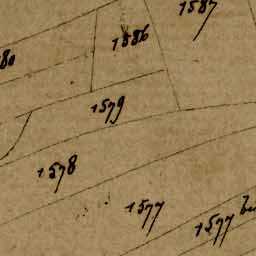 1587
1586
80
1579
1578
1577
1577